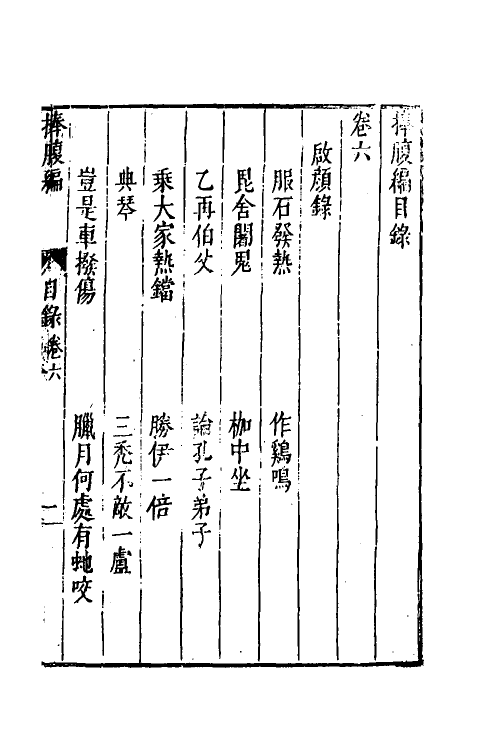 捧腹編目錄
卷六
啟顏錄
服石發熱
作鷄鳴
毘舍闍鬼
枷中坐
乞再伯父
論孔子弟子
乘大家熱鐺
勝伊一倍
典琴
三禿不敵一盧
豈是車撥傷
臘月何處有虵咬
捧腹編
目錄卷六
二